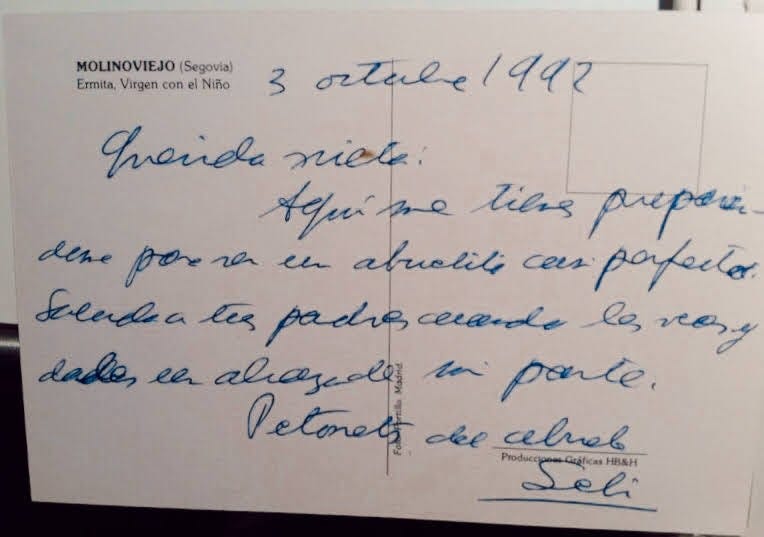 MOLINOVIEJO (Segovia)
Ermita, Virgen con el Niño
3 octubre 1992
Querida nieta:
Aquí me tienes preparán-
dome para ser un abuelito casi perfecto.
Saluda a tus padres cuando los veas y
dales un abrazo de mi parte.
Petonets del abuelo
Seli
Foto Portillo. Madrid
Producciones Gráficas HB&H